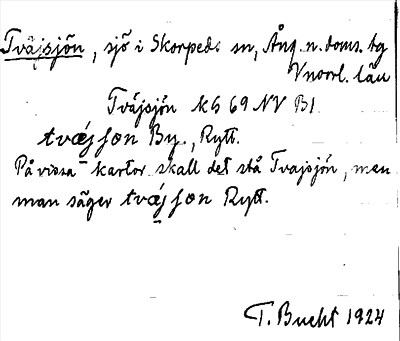 Tväjsjön, sjö i Skorpeds sn, Ång. n. doms. bg
Vnorrl. län
Tväjsjön KG 69 NV B1
tvǽjʃon By., Rytt.
På vissa kartor skall det stå Tvajsjön, men
man säger tvǽjʃon Rytt.
T. Bucht 1924